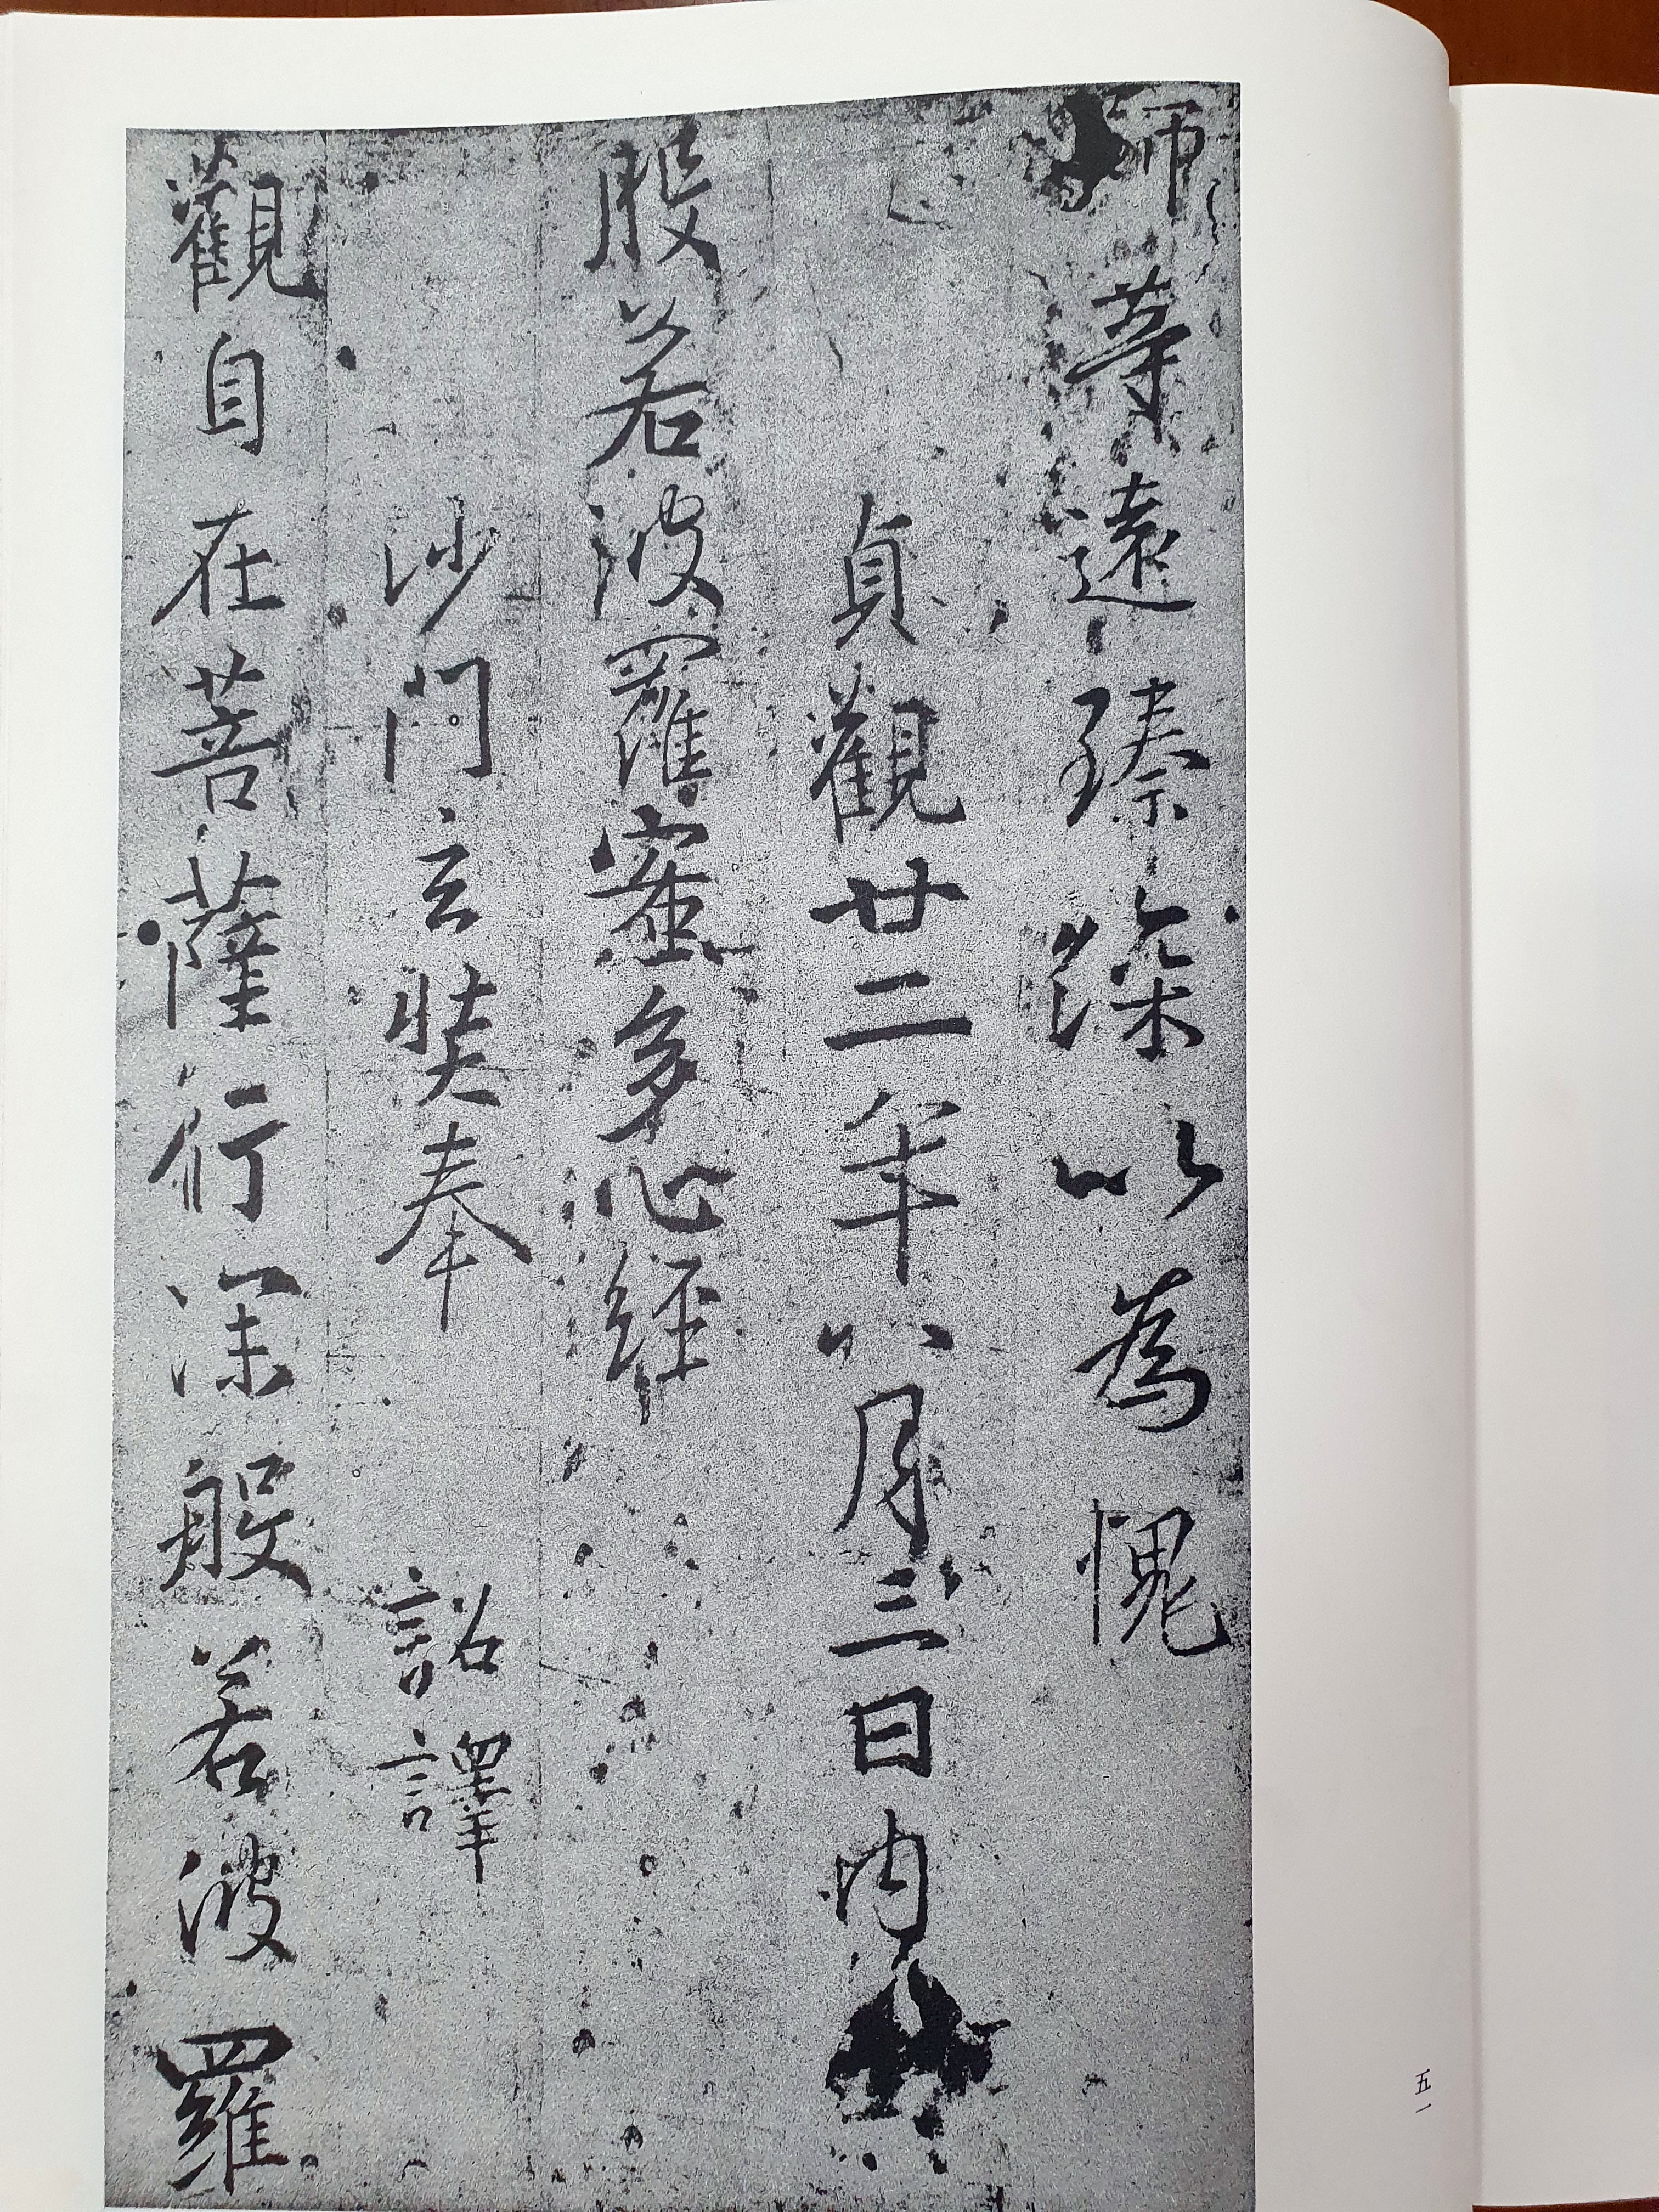 師等遠臻深以為愧
貞觀廿二年八月三日內
般若波羅蜜多心経
沙門玄奘奉 詔譯
觀自在菩薩行深般若波羅
五一